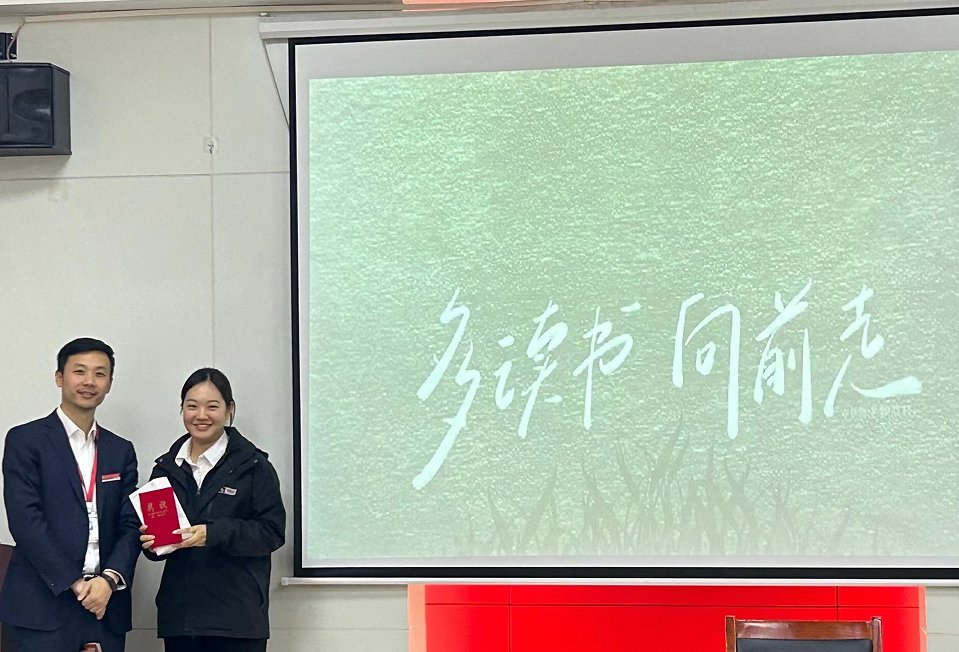 多读书 向前走